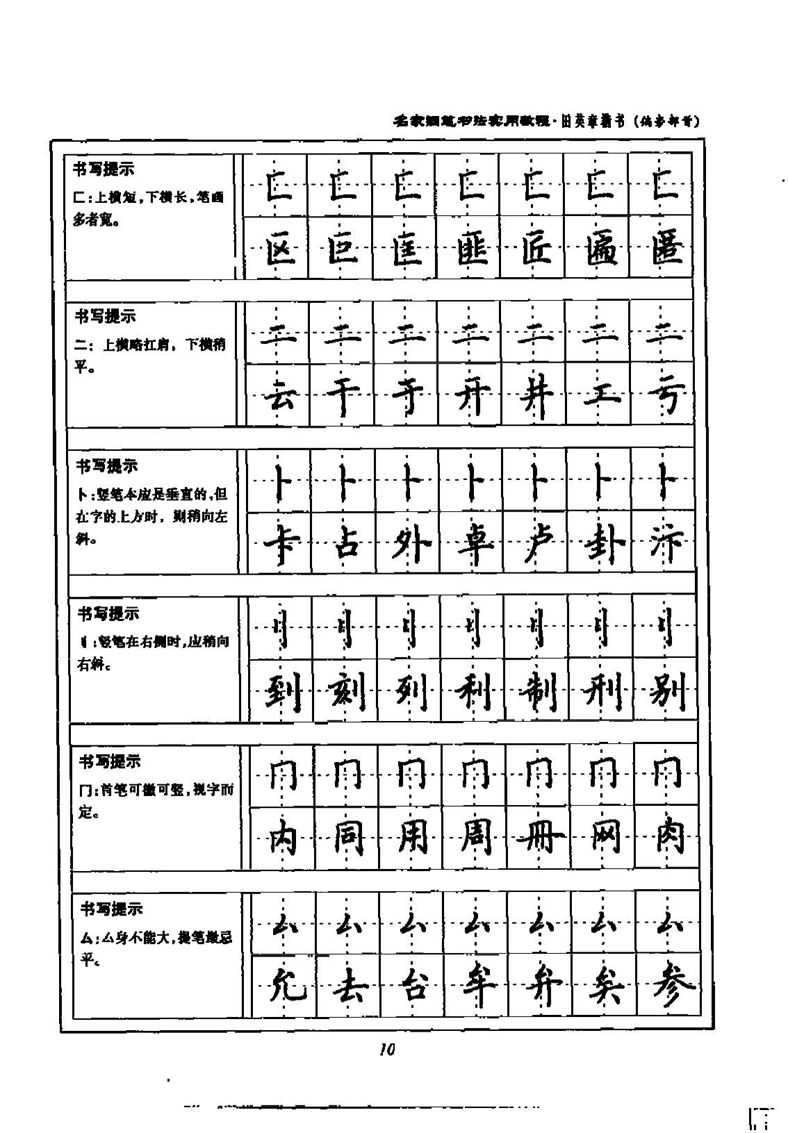 名家钢笔书法实用教程·田英章楷书(偏旁部首)
书写提示
匚:上横短,下横长,笔画
多者宽。
匚匚匚匚匚匚匚
区巨匡匪匠匾匿
书写提示
二:上横略扛肩,下横稍
平。
二二二二二二二
云干于开井工亏
书写提示
卜:竖笔本应是垂直的,但
在字的上方时,则稍向左
斜。
卜卜卜卜卜卜卜
卡占外卓卢卦汴
书写提示
刂:竖笔在右侧时,应稍向
右斜。
刂刂刂刂刂刂刂
到刻列利制刑别
书写提示
冂:首笔可撇可竖,视字而
定。
冂冂冂冂冂冂冂
内同用周冊网肉
书写提示
厶:厶身不能大,提笔最忌
平。
厶厶厶厶厶厶厶
允去台牟弁矣参
10